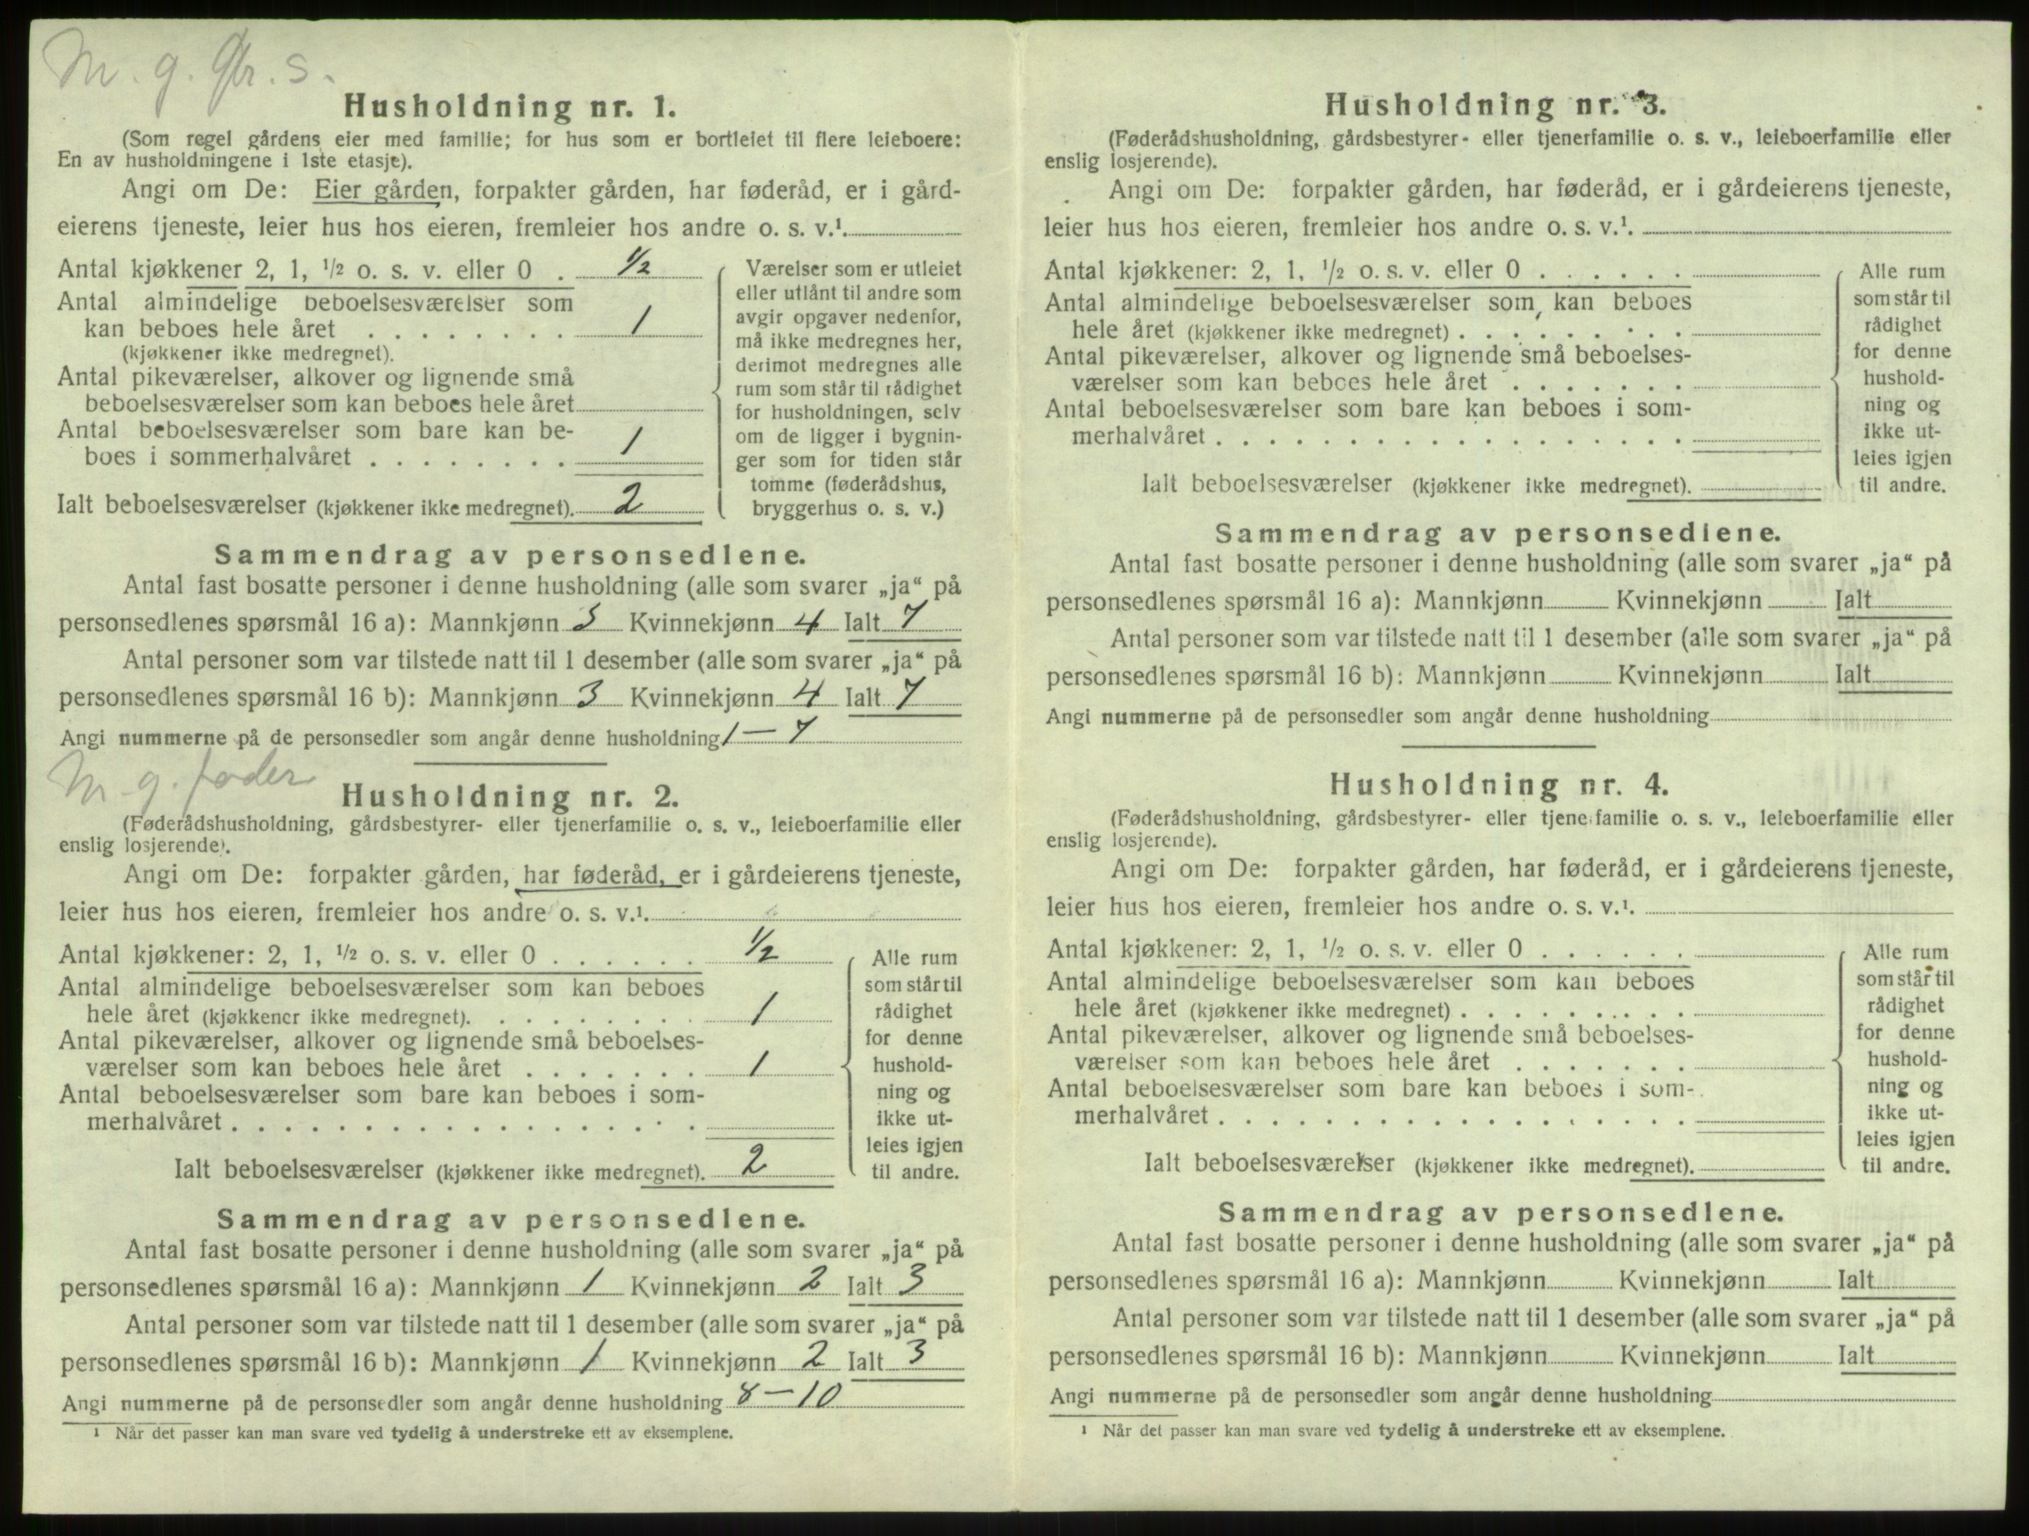 M. g. Gbr. s.
Husholdning nr. 1.
(Som regel gårdens eier med familie; for hus som er bortleiet til flere leieboere:
En av husholdningene i 1ste etasje).
Angi om De: Eier gården, forpakter gården, har føderåd, er i gård-
eierens tjeneste, leier hus hos eieren, fremleier hos andre o. s. v.¹
Antal kjøkkener 2, 1, ½ o. s. v. eller 0 . ½
Antal almindelige beboelsesværelser som
kan beboes hele året . . . . . . . . 1
(kjøkkener ikke medregnet).
Antal pikeværelser, alkover og lignende små
beboelsesværelser som kan beboes hele året
Antal beboelsesværelser som bare kan be-
boes i sommerhalvåret . . . . . . . . 1
Ialt beboelsesværelser (kjøkkener ikke medregnet). 2
Værelser som er utleiet
eller utlånt til andre som
avgir opgaver nedenfor,
må ikke medregnes her,
derimot medregnes alle
rum som står til rådighet
for husholdningen, selv
om de ligger i bygnin-
ger som for tiden står
tomme (føderådshus,
bryggerhus o. s. v.)
Sammendrag av personsedlene.
Antal fast bosatte personer i denne husholdning (alle som svarer „ja“ på
personsedlenes spørsmål 16 a): Mannkjønn 3 Kvinnekjønn 4 Ialt 7
Antal personer som var tilstede natt til 1 desember (alle som svarer „ja“ på
personsedlenes spørsmål 16 b): Mannkjønn 3 Kvinnekjønn 4 Ialt 7
Angi nummerne på de personsedler som angår denne husholdning 1 — 7
M. g. føder
Husholdning nr. 2.
(Føderådshusholdning, gårdsbestyrer- eller tjenerfamilie o. s. v., leieboerfamilie eller
enslig losjerende).
Angi om De: forpakter gården, har føderåd, er i gårdeierens tjeneste,
leier hus hos eieren, fremleier hos andre o. s. v.¹
Antal kjøkkener: 2, 1, ½ o. s. v. eller 0 . . . . . . ½
Antal almindelige beboelsesværelser som kan beboes
hele året (kjøkkener ikke medregnet). . . . . . . . . 1
Antal pikeværelser, alkover og lignende små beboelses-
værelser som kan beboes hele året . . . . . . . 1
Antal beboelsesværelser som bare kan beboes i som-
merhalvåret . . . . . . . . . . . . . . . . . .
Ialt beboelsesværelser (kjøkkener ikke medregnet). 2
Alle rum
som står til
rådighet
for denne
hushold-
ning og
ikke ut-
leies igjen
til andre.
Sammendrag av personsedlene.
Antal fast bosatte personer i denne husholdning (alle som svarer „ja“ på
personsedlenes spørsmål 16 a): Mannkjønn 1 Kvinnekjønn 2 Ialt 3
Antal personer som var tilstede natt til 1 desember (alle som svarer „ja“ på
personsedlenes spørsmål 16 b): Mannkjønn 1 Kvinnekjønn 2 Ialt 3
Angi nummerne på de personsedler som angår denne husholdning 8 — 10
¹ Når det passer kan man svare ved tydelig å understreke ett av eksemplene.
Husholdning nr. 3.
(Føderådshusholdning, gårdsbestyrer- eller tjenerfamilie o. s. v., leieboerfamilie eller
enslig losjerende).
Angi om De: forpakter gården, har føderåd, er i gårdeierens tjeneste,
leier hus hos eieren, fremleier hos andre o. s. v.¹
Antal kjøkkener: 2, 1, ½ o. s. v. eller 0 . . . . . .
Antal almindelige beboelsesværelser som kan beboes
hele året (kjøkkener ikke medregnet) . . . . . . . . .
Antal pikeværelser, alkover og lignende små beboelses-
værelser som kan beboes hele året . . . . . . .
Antal beboelsesværelser som bare kan beboes i som-
merhalvåret . . . . . . . . . . . . . . . . . .
Ialt beboelsesværelser (kjøkkener ikke medregnet).
Alle rum
som står til
rådighet
for denne
hushold-
ning og
ikke ut-
leies igjen
til andre.
Sammendrag av personsedlene.
Antal fast bosatte personer i denne husholdning (alle som svarer „ja“ på
personsedlenes spørsmål 16 a): Mannkjønn Kvinnekjønn Ialt
Antal personer som var tilstede natt til 1 desember (alle som svarer „ja“ på
personsedlenes spørsmål 16 b): Mannkjønn Kvinnekjønn Ialt
Angi nummerne på de personsedler som angår denne husholdning
Husholdning nr. 4.
(Føderådshusholdning, gårdsbestyrer- eller tjenerfamilie o. s. v., leieboerfamilie eller
enslig losjerende).
Angi om De: forpakter gården, har føderåd, er i gårdeierens tjeneste,
leier hus hos eieren, fremleier hos andre o. s. v.¹
Antal kjøkkener: 2, 1, ½ o. s. v. eller 0 . . . . . .
Antal almindelige beboelsesværelser som kan beboes
hele året (kjøkkener ikke medregnet) . . . . . . . . .
Antal pikeværelser, alkover og lignende små beboelses-
værelser som kan beboes hele året . . . . . . .
Antal beboelsesværelser som bare kan beboes i som-
merhalvåret . . . . . . . . . . . . . . . . . .
Ialt beboelsesværelser (kjøkkener ikke medregnet).
Alle rum
som står til
rådighet
for denne
hushold-
ning og
ikke ut-
leies igjen
til andre.
Sammendrag av personsedlene.
Antal fast bosatte personer i denne husholdning (alle som svarer „ja“ på
personsedlenes spørsmål 16 a): Mannkjønn Kvinnekjønn Ialt
Antal personer som var tilstede natt til 1 desember (alle som svarer „ja“ på
personsedlenes spørsmål 16 b): Mannkjønn Kvinnekjønn Ialt
Angi nummerne på de personsedler som angår denne husholdning
¹ Når det passer kan man svare ved tydelig å understreke ett av eksemplene.